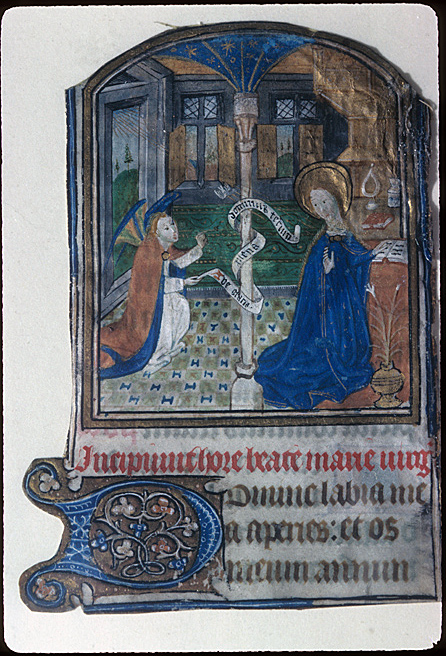 plena
dominus tecum
Incipiunt hore beate marie uirg
Domine labia me
a aperies: et os
meum annun